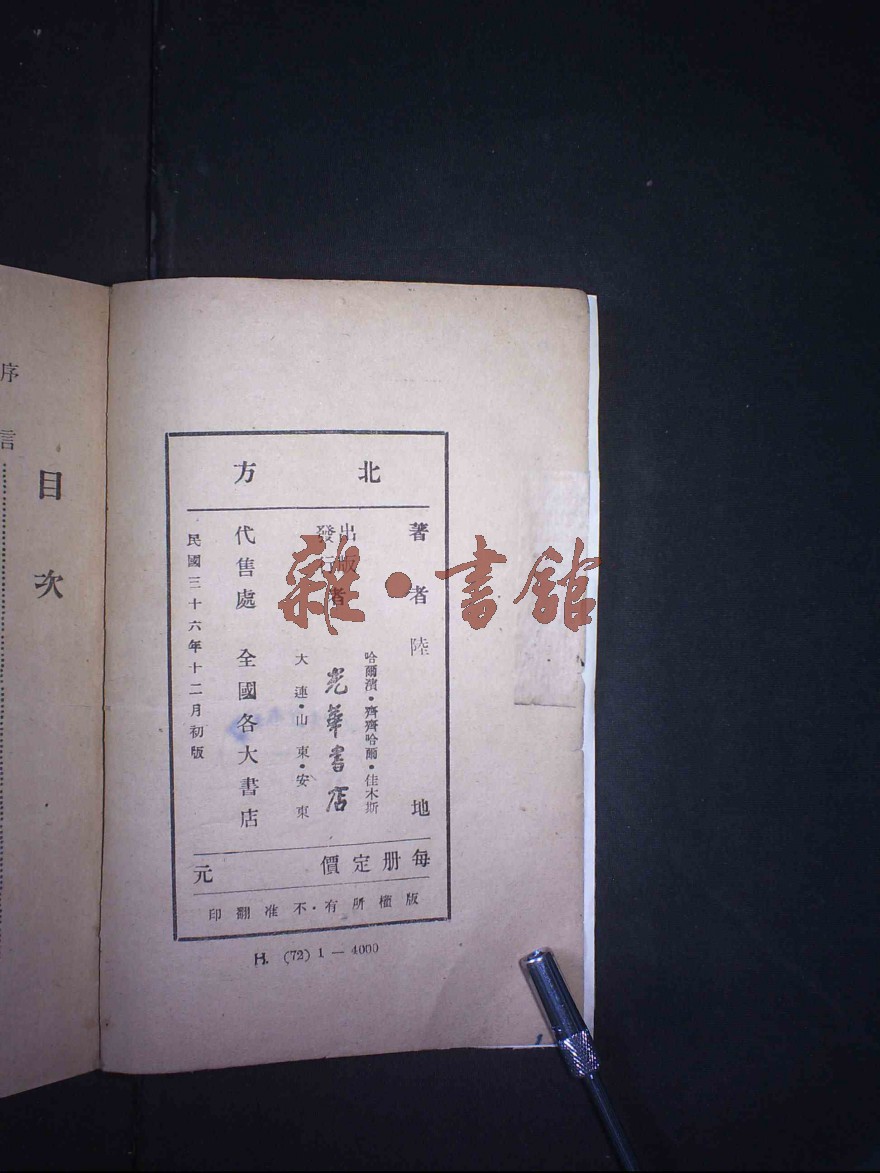 北方
著者　陸地
哈爾濱・齊齊哈爾・佳木斯
出版
發行者
光華書店
大連・山東・安東
代售處　全國各大書店
民國三十六年十二月初版
每册定價　元
版權所有・不准翻印
H. (72) 1 — 4000
目次
序言
雜・書館